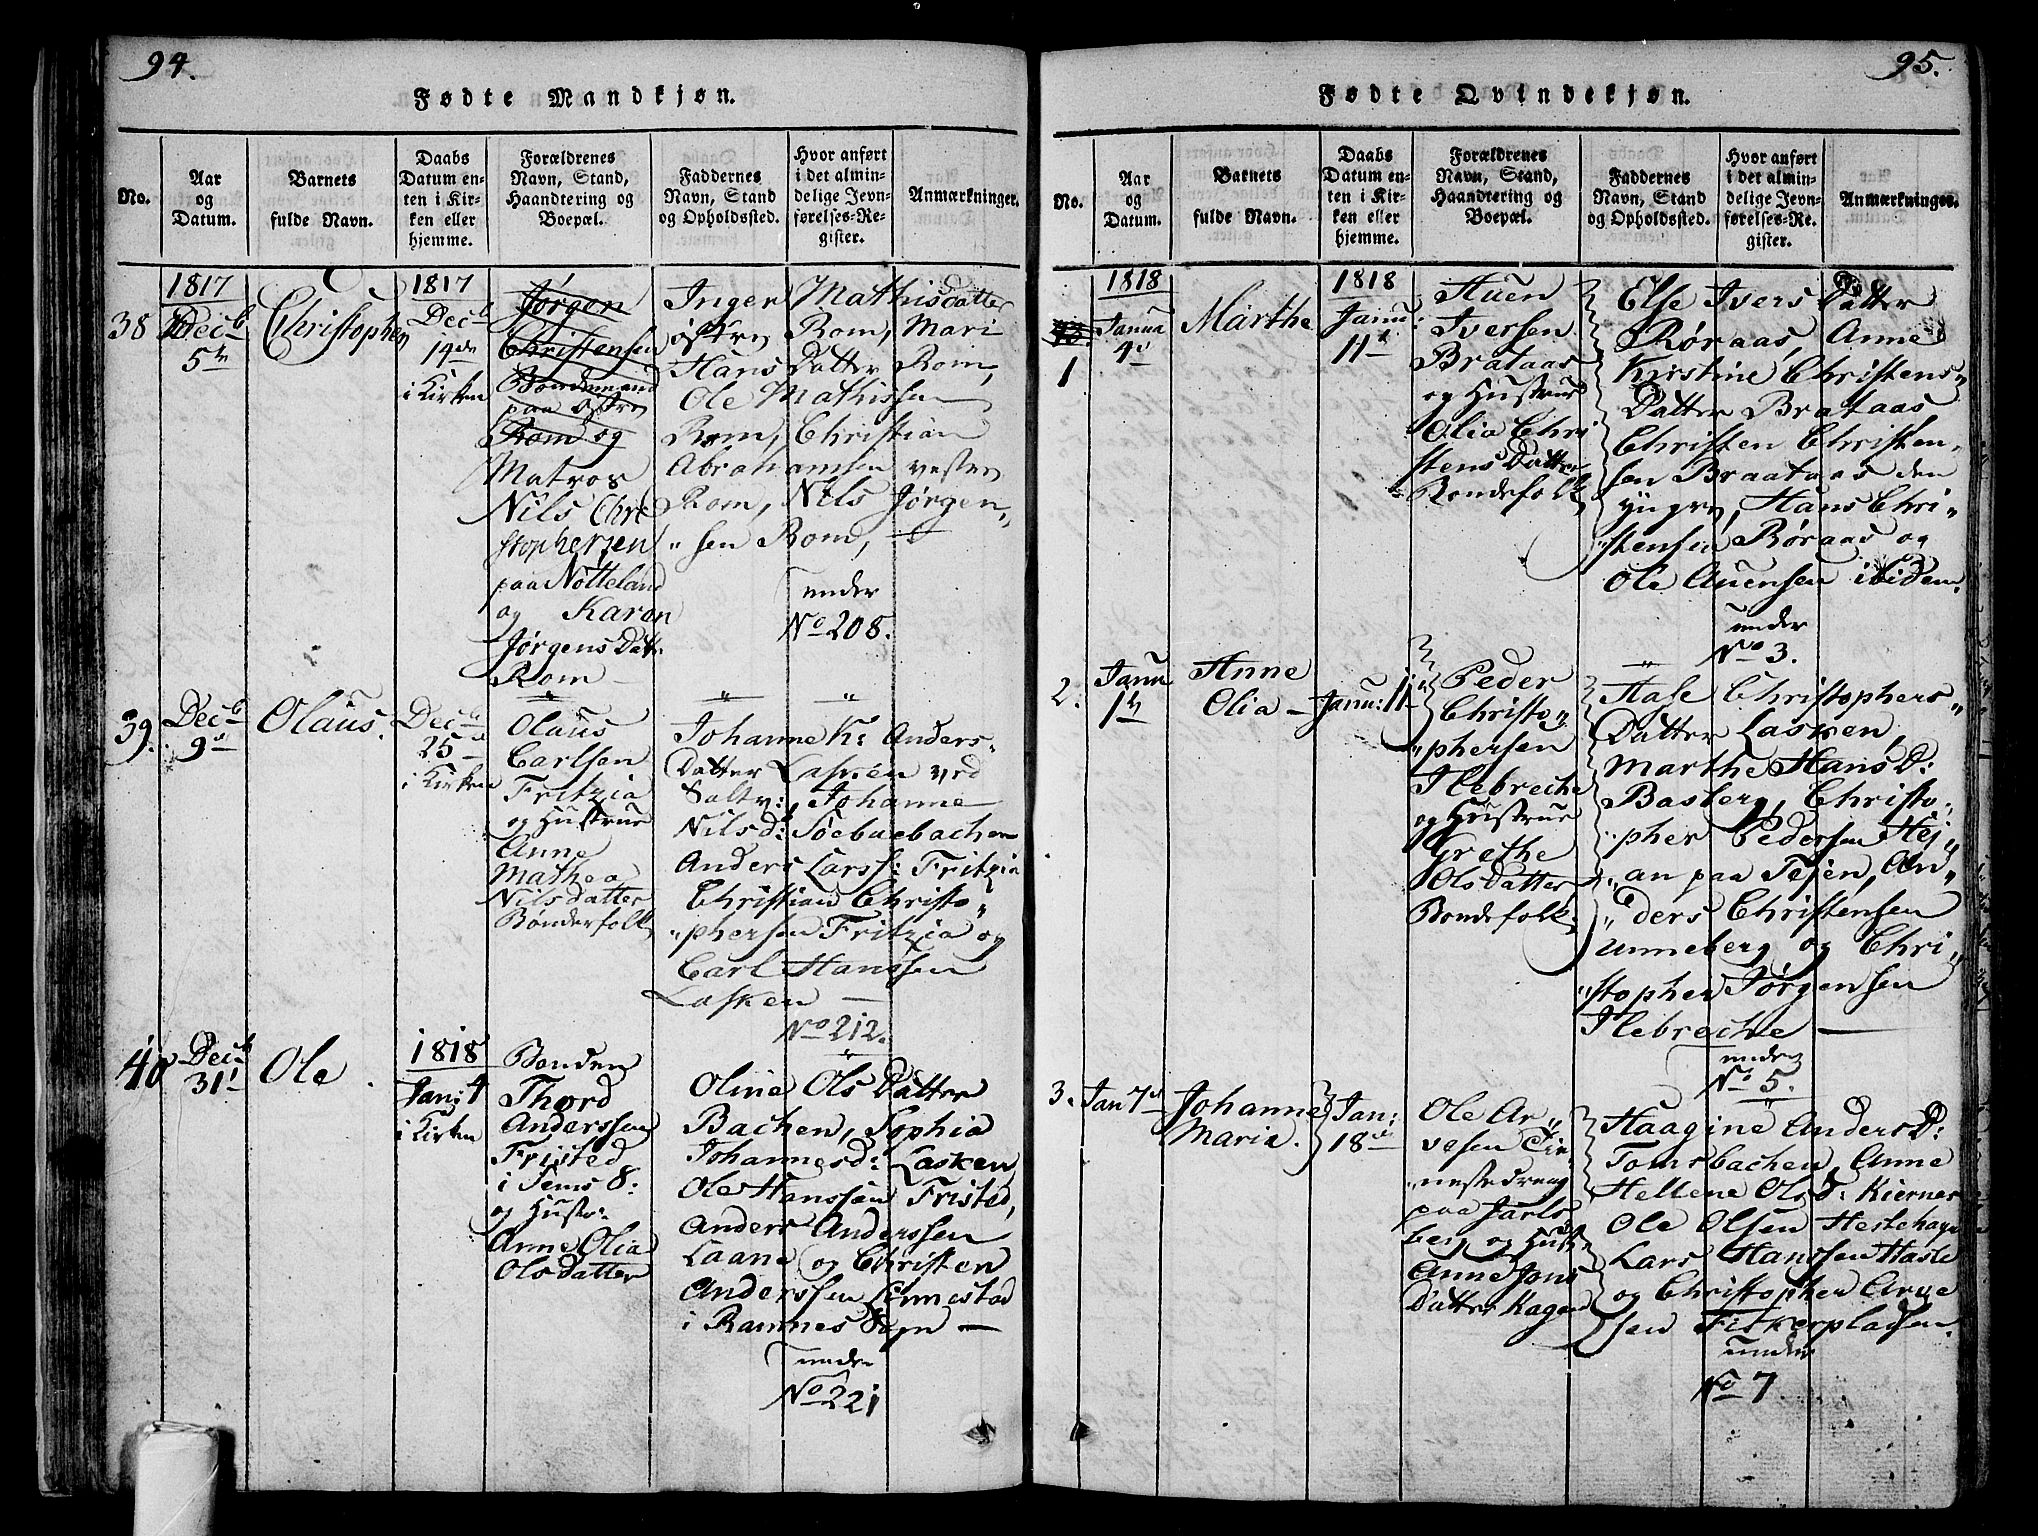 94.
Fødte Mandkjøn.
No.
Aar
og
Datum.
Barnets
fulde Navn.
Daabs
Datum en-
ten i Kir-
ken eller
hjemme.
Forældrenes
Navn, Stand,
Haandtering og
Boepæl.
Faddernes
Navn, Stand
og Opholdssted.
Hvor anført
i det almin-
delige Jevn-
førelses-Re-
gister.
Anmærkninger.
38
1817
Decb
5te
Christopher
1817
Decb
14de
i Kirken
Jørgen
Christensen
Bondemand
paa østre
Rom og
Matros
Nils Chri
stophersen
paa Nøtteland
og Karen
Jørgens Datt:
Rom
Inger Mathisdatter
østre Rom, Mari
Hans Datter Rom,
Ole Mathissen
Rom, Christian
Abrahamsen vestre
Rom, Nils Jørgen„
„sen Rom, —
under
No 208.
39.
Decb
9de
Olaus.
Decb
25
i Kirken
Olaus
Carlsen
Fritzia
og Hustrue
Anne
Mathea
Nilsdatter
Bønderfolk
Johanne K: Anders-
Datter Lasken ved
Saltv:, Johanne
Nilsd: Søebuebachen
Anders Larss: Fritzia
Christian Christo„
„phersen Fritzia og
Carl Hanssen
Lasken —
No 212.
40
Decb
31
Ole
1818
Jan: 4
i Kirken
Bonden
Thord
Anderssen
Fristed
i Sems S:
og Hustr:
Anne Olia
Olsdatter
Oline Ols Datter
Bachen, Sophia
Johannesd: Lasken,
Ole Hanssen Fristed,
Anders Anderssen
Laane og Christen
Anderssen Linnestad
i Ramnes Sogn —
under
No 221
95.
Fødte Qvindekjøn.
No.
Aar
og
Datum.
Barnets
fulde Navn.
Daabs
Datum en-
ten i Kir-
ken eller
hjemme.
Forældrenes
Navn, Stand,
Haandtering og
Boepæl.
Faddernes
Navn, Stand
og Opholdssted.
Hvor anført
i det almin-
delige Jevn-
førelses-Re-
gister.
Anmærkninger.
1
1818
Janua
4de
Marthe
1818
Janu:
11te
Auen
Iversen
Brataas
og Hustrue
Olia Chri
stens Datter
Bondefolk
Else Ivers Datter
Røraas, Anne
Kristine Christens„
Datter Brataas,
Christen Christen„
sen Braataas den
yngre, Hans Chri„
„stensen Røraas og
Ole Auensen ibidem.
under
No 3.
2.
Janu
1te
Anne
Olia —
Janu: 11
Peder
Christo„
„phersen
Ilebreche
og Hustrue
Grethe
Olsdatter
Bondefolk.
Aase Christophers„
Datter Lasken,
Marthe Hans D:
Basberg, Christo„
„pher Pedersen Hej„
„an paa Tejen, An„
„ders Christensen
Unneberg og Chri„
„stopher Jørgensen
Ilebreche —
under
No 5.
3.
Jan 7de
Johanne
Maria.
Jan:
18de
Ole Ar„
vesen Tie„
„nestedreng
paa Jarls
berg og Hust:
Anne Jons
Datter Hagen
Haagine Anders D:
Tomsbachen, Anne
Hellene Olsd: Kiernes
Ole Olsen Hestehagen
Lars Hanssen Hasle
og Christopher Arve
sen Fiskerpladsen.
under
No 7